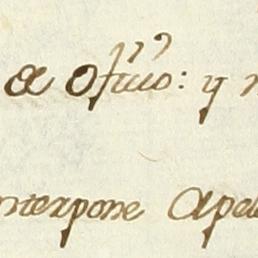 a ofiuio: y
nterpone Apel